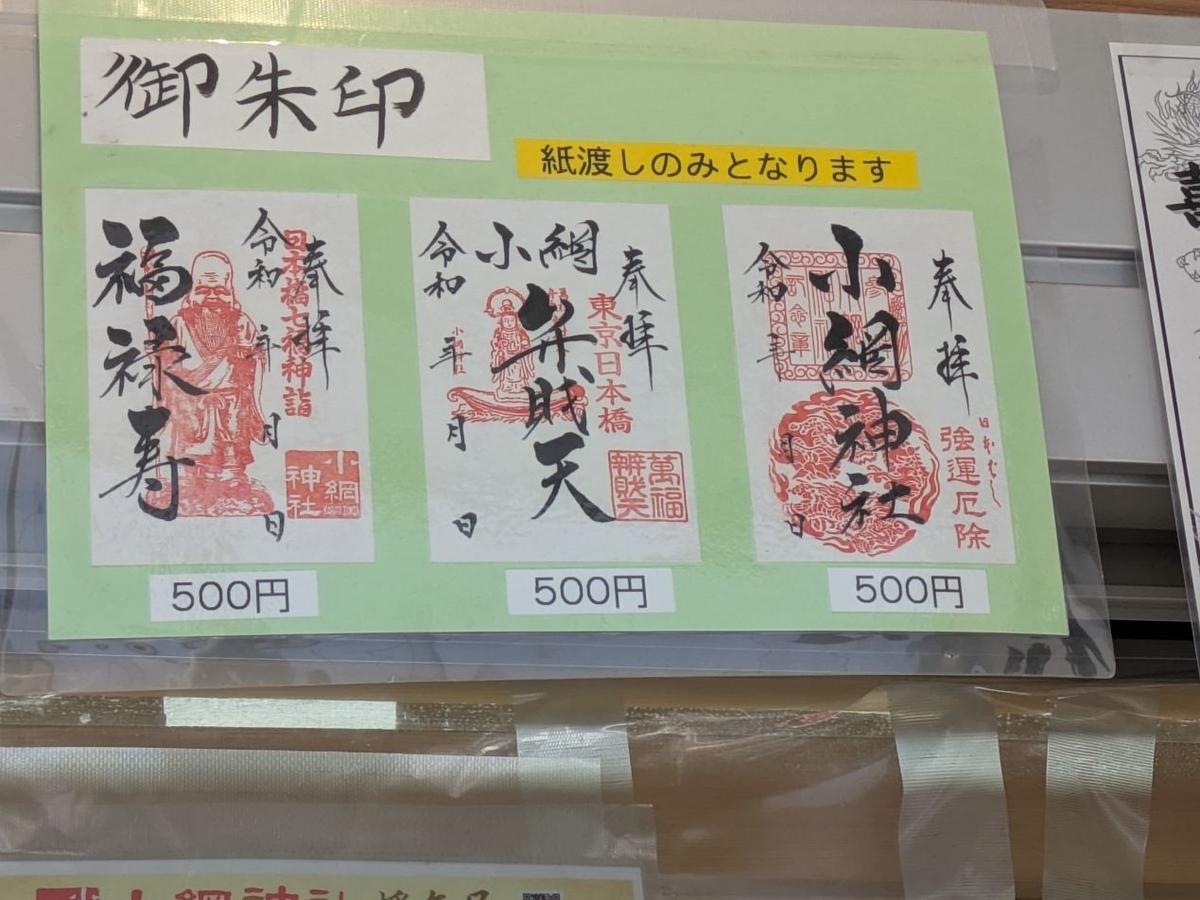 御朱印
紙渡しのみとなります
奉拝
日本橋七福神詣
令和 年 月 日
福禄寿
小網神社
500円
奉拝
東京日本橋
萬福辨財天
小網
弁財天
令和 年 月 日
500円
奉拝
強運厄除
小網神社
令和 年 月 日
500円
喜
小網神社